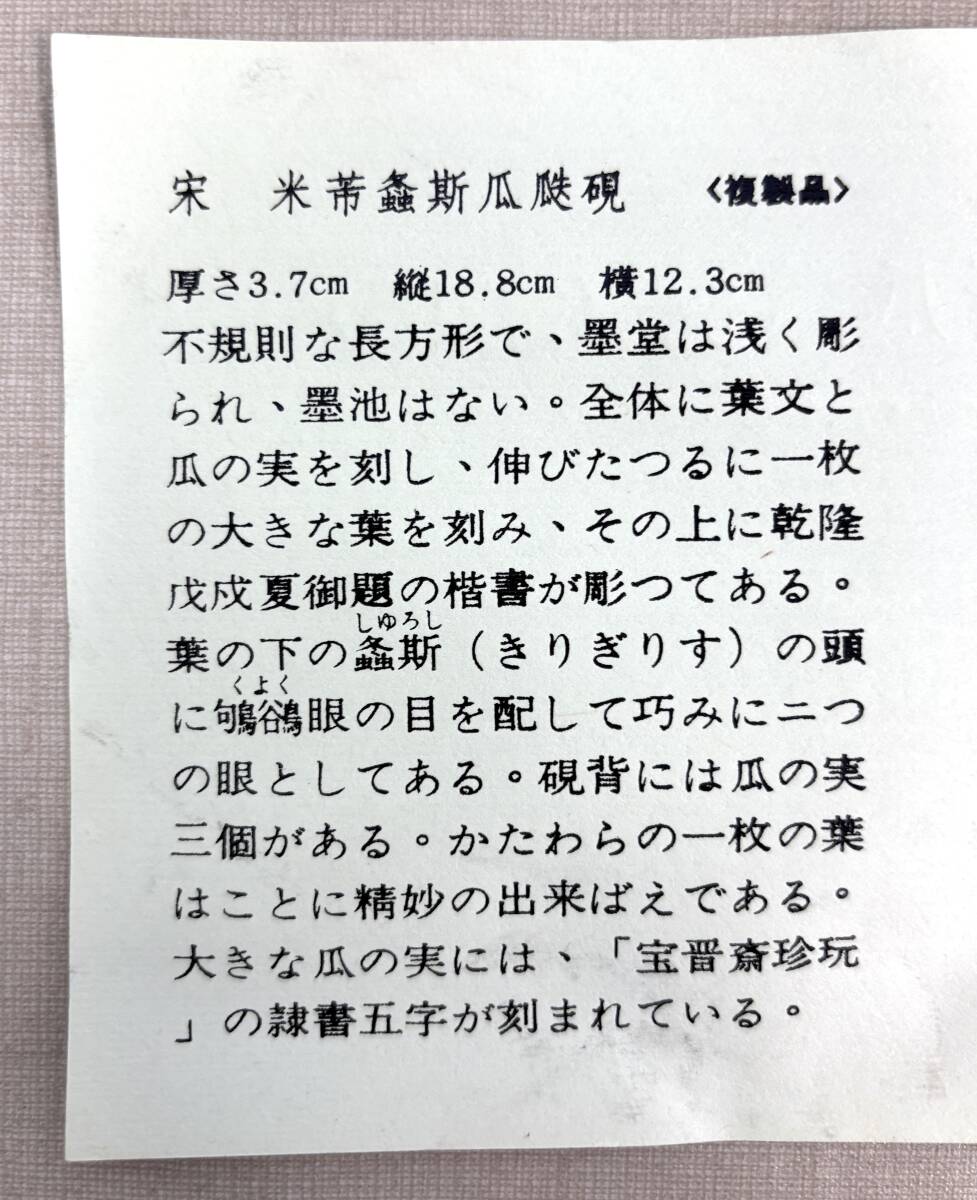 宋　米芾螽斯瓜瓞硯　〈複製品〉
厚さ3.7cm　縦18.8cm　横12.3cm
不規則な長方形で、墨堂は浅く彫
られ、墨池はない。全体に葉文と
瓜の実を刻し、伸びたつるに一枚
の大きな葉を刻み、その上に乾隆
戊戍夏御題の楷書が彫つてある。
しゆろし
葉の下の螽斯（きりぎりす）の頭
くよく
に鴝鵒眼の目を配して巧みに二つ
の眼としてある。硯背には瓜の実
三個がある。かたわらの一枚の葉
はことに精妙の出来ばえである。
大きな瓜の実には、「宝晋斎珍玩
」の隷書五字が刻まれている。